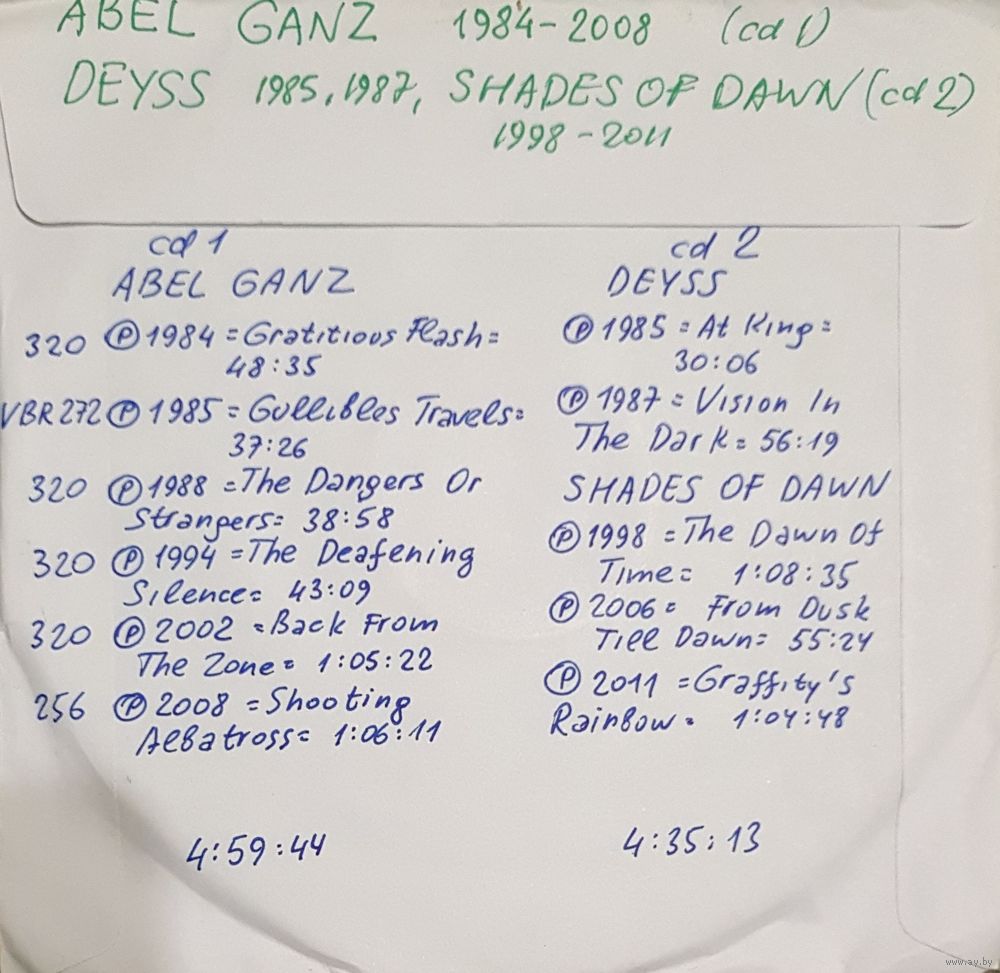 ABEL GANZ 1984-2008 (cd 1)
DEYSS 1985, 1987, SHADES OF DAWN (cd 2)
1998-2011
cd 1
ABEL GANZ
320 Ⓟ 1984 = Gratitious Flash =
48:35
VBR 272 Ⓟ 1985 = Gullibles Travels =
37:26
320 Ⓟ 1988 = The Dangers Or
Strangers = 38:58
320 Ⓟ 1994 = The Deafening
Silence = 43:09
320 Ⓟ 2002 = Back From
The Zone = 1:05:22
256 Ⓟ 2008 = Shooting
Albatross = 1:06:11
4:59:44
cd 2
DEYSS
Ⓟ 1985 = At King =
30:06
Ⓟ 1987 = Vision In
The Dark = 56:19
SHADES OF DAWN
Ⓟ 1998 = The Dawn Of
Time = 1:08:35
Ⓟ 2006 = From Dusk
Till Dawn = 55:24
Ⓟ 2011 = Graffity's
Rainbow = 1:04:48
4:35:13
www.ay.by